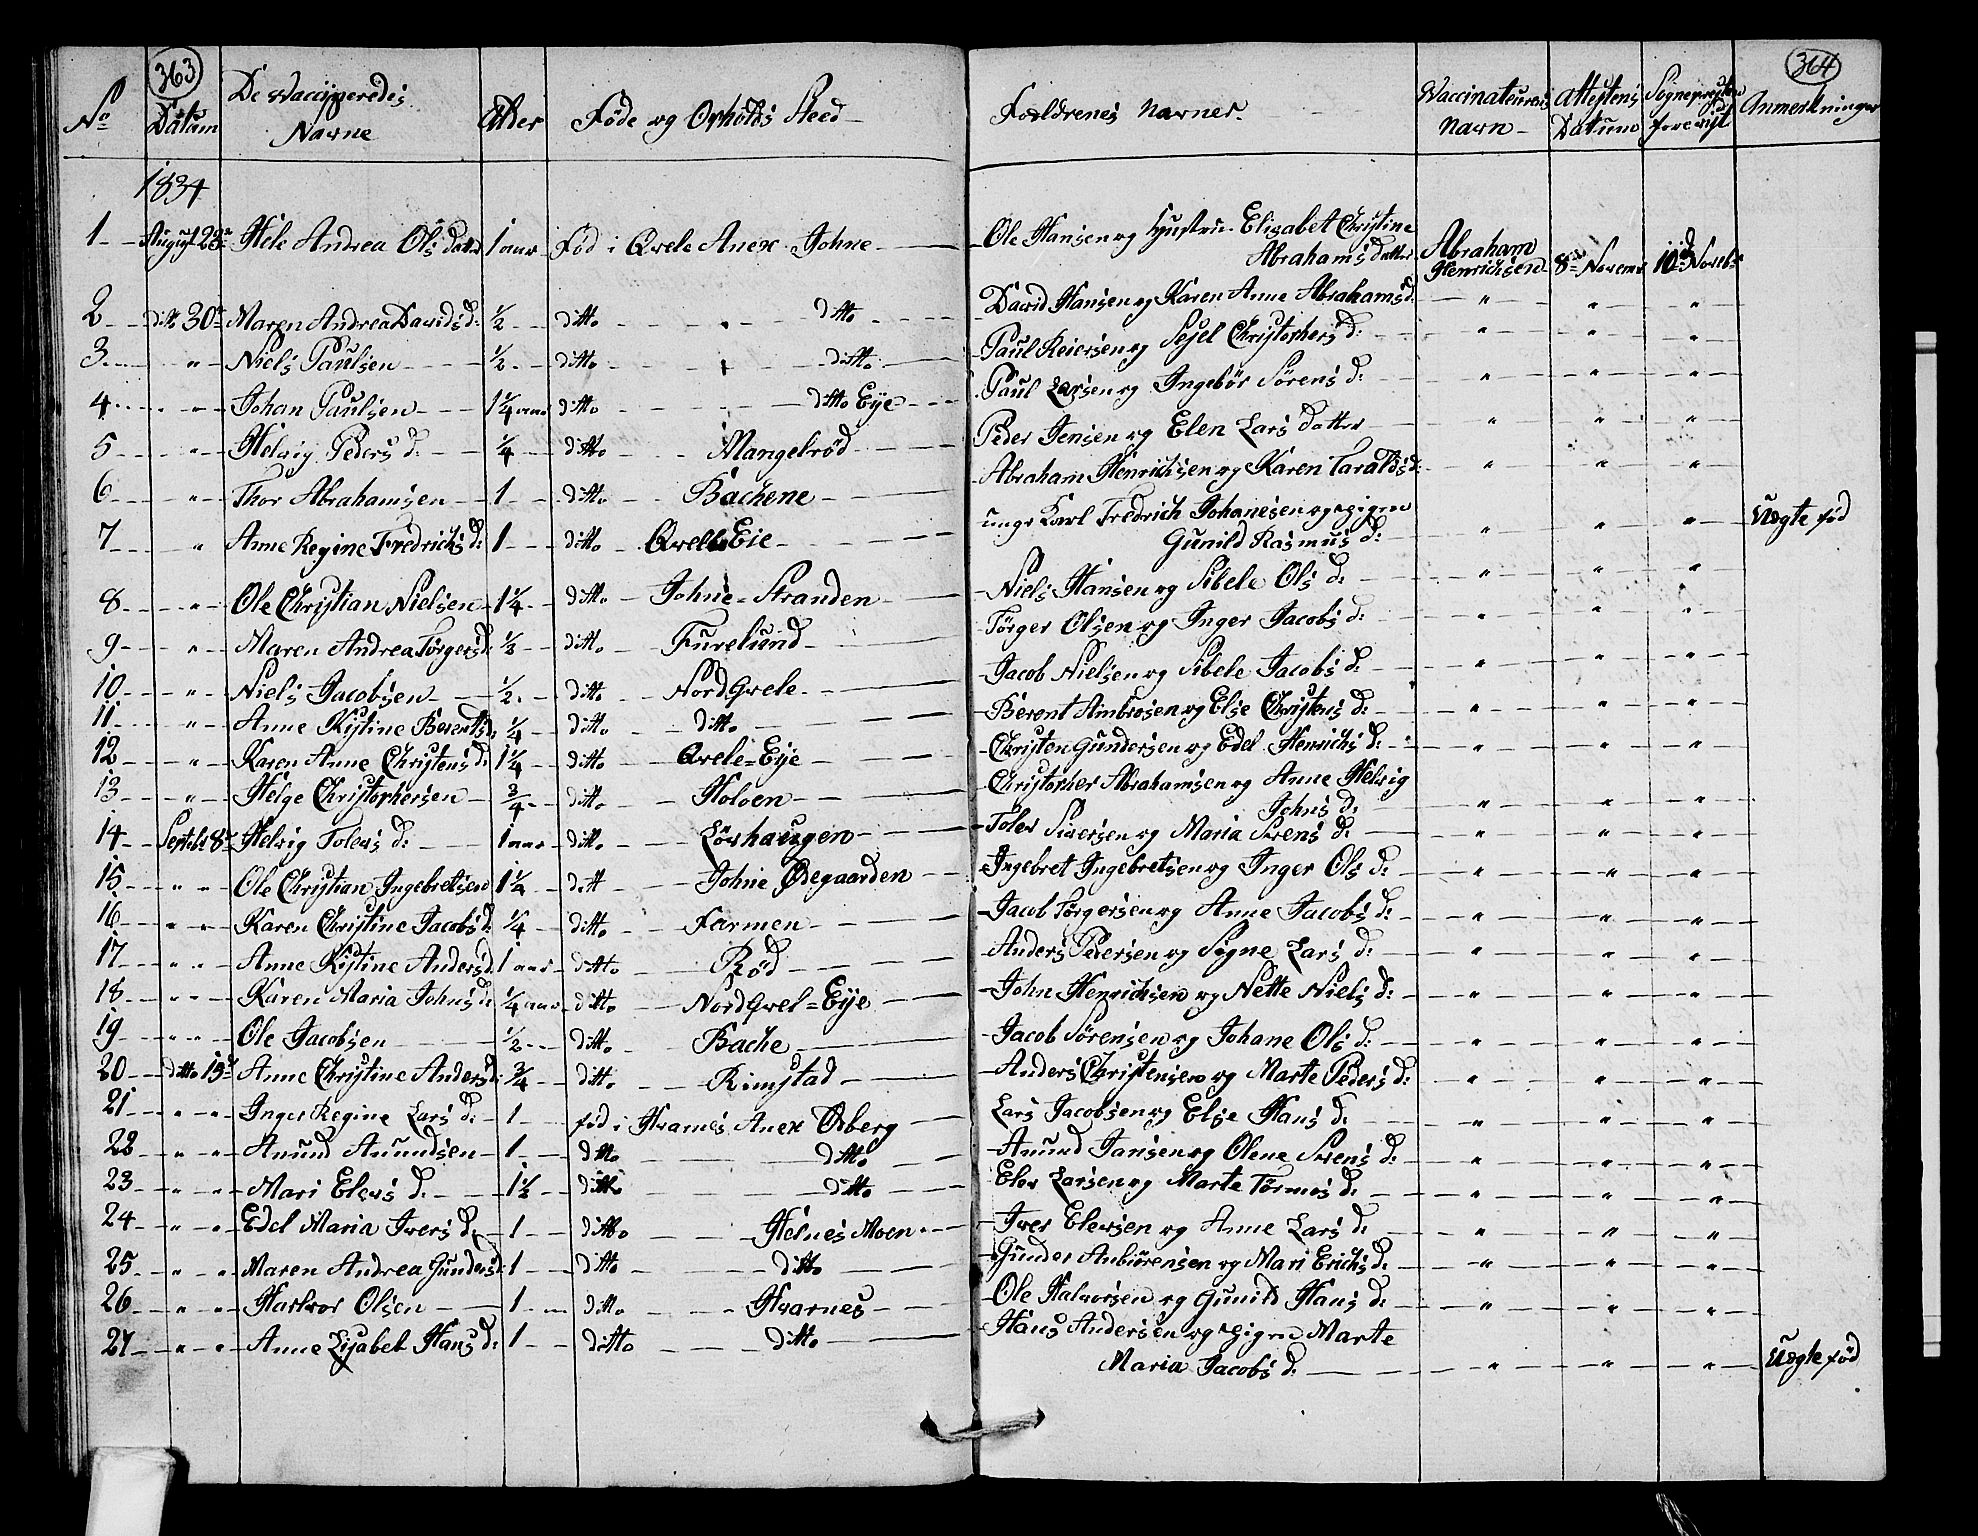 363
No Datum De Vaccineredes Navne Alder Føde og Opholds Sted
1834
1 August 23 Hele Andrea Ols datter 1 aar Fød i Qvele Anex Johne
2 ditto 30 Maren Andrea Davids d: 1/2 ditto ditto
3 " Niels Paulsen 1/2 ditto ditto
4 " Johan Paulsen 1 1/4 aar ditto ditto Eye
5 " Helvig Peders d: 1/4 ditto Mangelrød
6 " Thor Abrahamsen 1 ditto Bachene
7 " Anne Regine Fredrichs d: 1 ditto Qvelle Eie
8 " Ole Christian Nielsen 1 1/4 ditto Johne=Stranden
9 " Maren Andrea Torgers d: 1/2 ditto Furelund
10 " Niels Jacobsen 1/2 ditto Nord Qvele
11 " Anne Kistine Berents d: 1/4 ditto ditto
12 " Karen Anne Christens d: 1 1/4 ditto Qvele=Eye
13 " Helge Christophersen 3/4 ditto Holoen
14 Septbr 8 Helvig Tolevs d: 1 aar ditto Løvhaugen
15 " " Ole Christian Ingebretsen 1 1/4 ditt Johne Ødegaarden
16 " " Karen Christine Jacobs d: 1/4 ditto Farmen
17 " " Anne Kistine Anders d. 1 aar ditto Rød
18 " " Karen Maria Johns d: 1/4 aar ditto Nord Qvel=Eye
19 " " Ole Jacobsen 1/2 ditto Bache
20 ditto 15 Anne Christine Anders d: 3/4 ditto Rimstad
21 " " Inger Regine Lars d: 1 fød i Hvarnes Anex Østberg
22 " " Anund Anundsen 1 ditto ditto
23 " " Mari Elevs d. 1 1/2 ditto ditto
24 " " Edel Maria Ivers d. 1 ditto Helnes Moen
25 " " Maren Andrea Gunders d 1 ditto ditto
26 " " Harlvor Olsen 1 ditto Hvarnes
27 " " Anne Lisabet Hans d: 1 ditto ditto
364
Forldrenes Navner Vaccinateurens Navn Attestens Datum Sognepresten forevist Anmerkninger
Ole Hansen og Hustrue Elisabet Christine
Abrahams datter Abraham Henrichsen 8 Novemr 10 Novebr
David Hansen og Karen Anne Abrahams d. " " "
Paul Reiersen og Sejel Christophers d: " " "
Paul Larsen og Ingebør Sørens d: " " "
Peder Jensen og Elen Lars datter " " "
Abraham Henrichsen og Karen Taralds d: " " "
unge Karl Fredrich Johanesen og pigen
Gunild Rasmus d: " " " Uegte fød
Niels Hansen og Sibele Ols d: " " "
Torger Olsen og Inger Jacobs d: " " "
Jacob Nielsen og Sibele Jacobs d: " " "
Berent Ambrosen og Else Christens d: " " "
Christen Gundersen og Edel Henrichs d: " " "
Christopher Abrahamsen og Anne Helvig
Johns d: " " "
Tolev Siversen og Maria Svens d: " " "
Ingebret Ingebretsen og Inger Ols d: " " "
Jacob Torgersen og Anne Jacobs d: " " "
Anders Pedersen og Signe Lars d: " " "
John Henrichsen og Nette Niels d: " " "
Jacob Sørensen og Johane Ols d: " " "
Anders Christensen og Marte Peders d: " " "
Lars Jacobsen og Else Hans d: " " "
Anund Jansen og Olene Svens d: " " "
Elev Larsen og Marte Tormos d: " " "
Iver Elevsen og Anne Lars d: " " "
Gunder Anbiørensen og Mari Erichs d: " " "
Ole Halvorsen og Gunild Hans d: " " "
Hans Andersen og pigen Marte
Maria Jacobs d: " " " Uegte fød